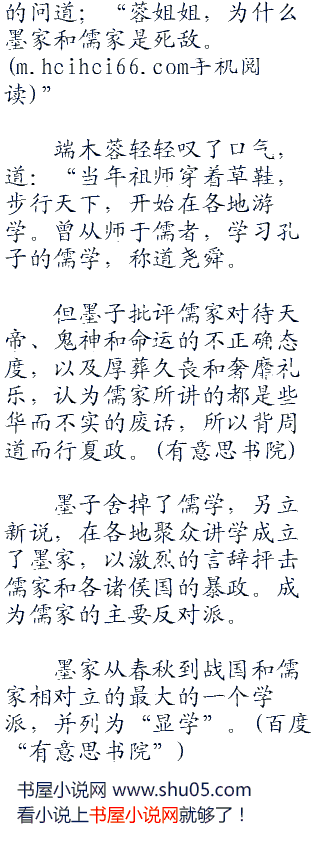 的问道；“蓉姐姐，为什么
墨家和儒家是死敌。
(m.hcihci66.com手机阅
读)”
端木蓉轻轻叹了口气，
道：“当年祖师穿着草鞋，
步行天下，开始在各地游
学。曾从师于儒者，学习孔
子的儒学，称道尧舜。
但墨子批评儒家对待天
帝、鬼神和命运的不正确态
度，以及厚葬久丧和奢靡礼
乐，认为儒家所讲的都是些
华而不实的废话，所以背周
道而行夏政。(有意思书院)
墨子舍掉了儒学，另立
新说，在各地聚众讲学成立
了墨家，以激烈的言辞抨击
儒家和各诸侯国的暴政。成
为儒家的主要反对派。
墨家从春秋到战国和儒
家相对立的最大的一个学
派，并列为“显学”。(百度
“有意思书院”)
书屋小说网 www.shu05.com
看小说上书屋小说网就够了！